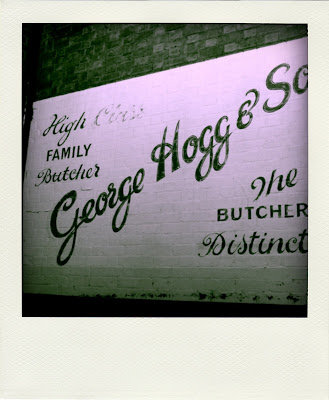 High Class
FAMILY
Butcher
George Hogg & So
The
BUTCHER
Distinct